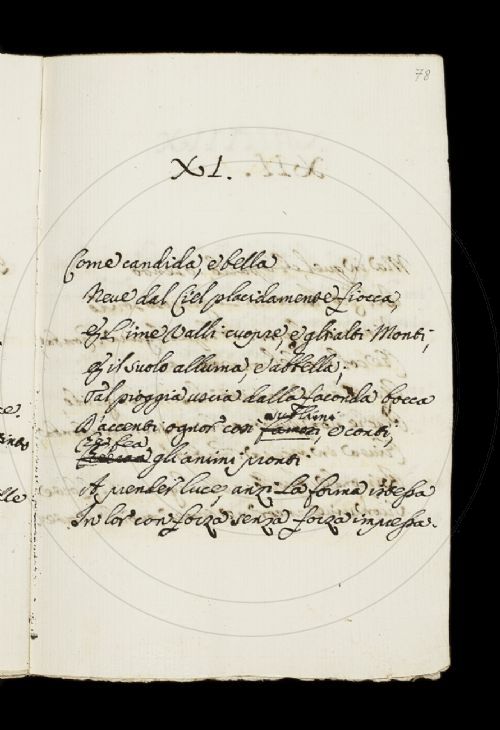 78
XI.
Come candida, e bella
Neve dal Ciel placidamente fiocca,
E l'ime Valli cuopre, e gli alti Monti,
E il suolo alluma, e abbella;
Tal pioggia uscia dalla faconda bocca
D'accenti ognor così famosi, e conti,
sublimi
E fea
gli animi pronti
A prender luce, anzi la forma istessa
In lor con forza senza forza impressa.